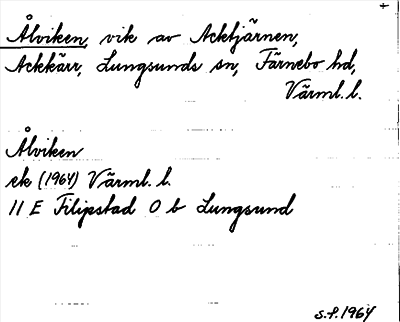 Ålviken, vik av Acktjärnen,
Ackkärr, Lungsunds sn, Färnebo hd,
Värml. l.
Ålviken
ek (1964) Värml. l.
11 E Filipstad 0 b Lungsund
S.f. 1964